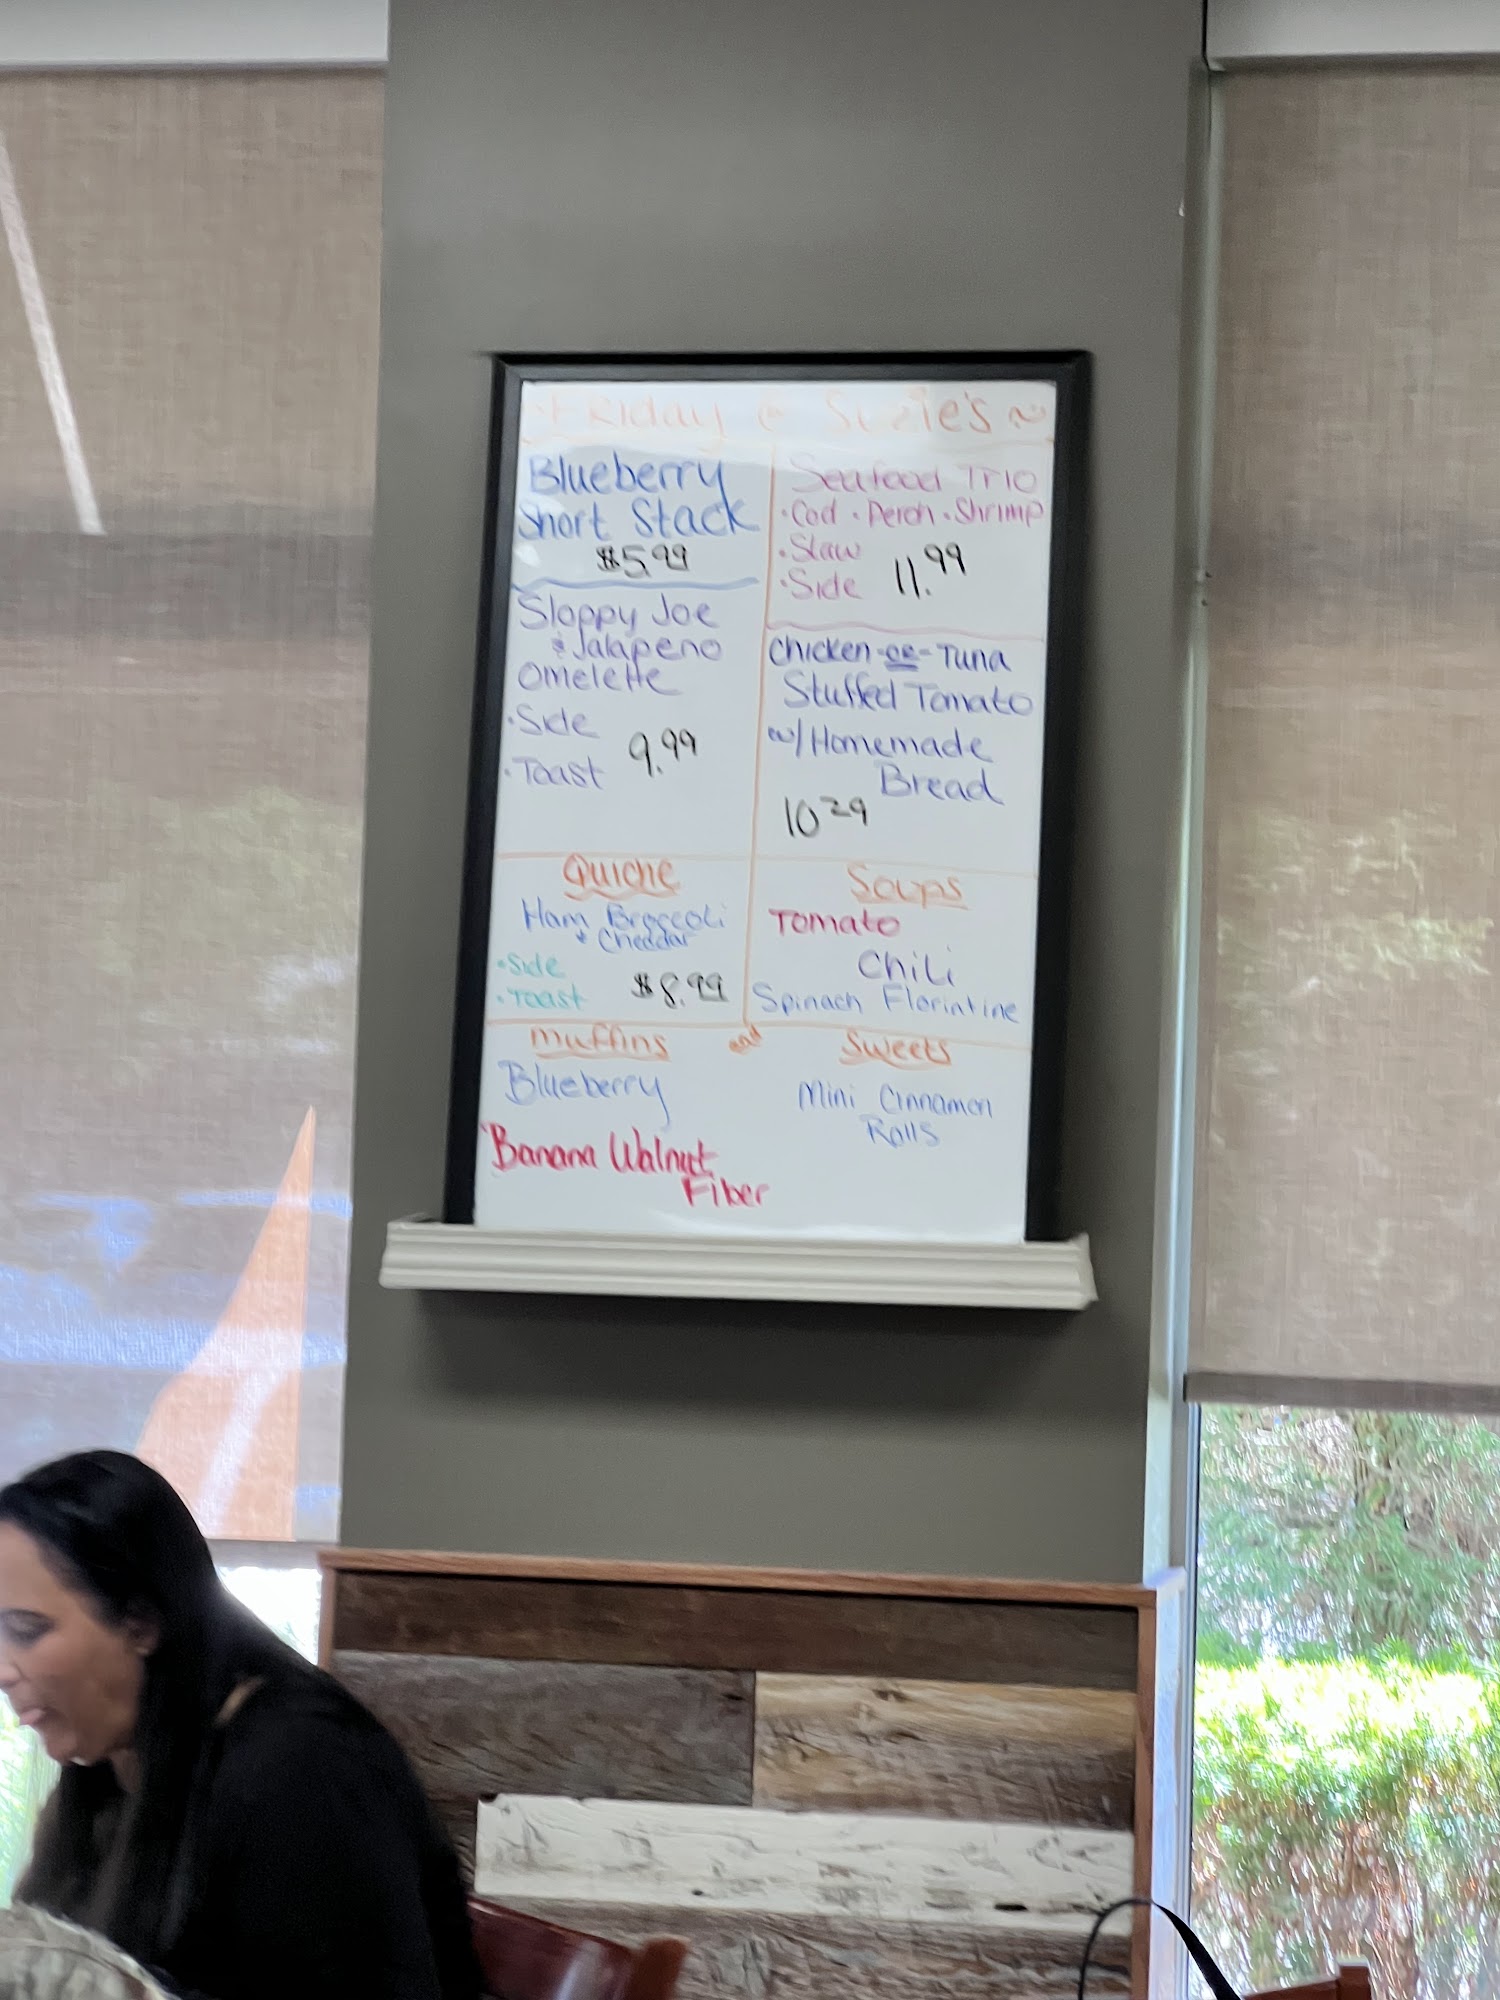 Friday @ Suzie's
Blueberry
Short Stack
$5.99
Sloppy Joe
& Jalapeno
Omelette
•Side
•Toast 9.99
Seafood Trio
•Cod •Perch •Shrimp
•Slaw
•Side 11.99
Chicken -or- Tuna
Stuffed Tomato
w/ Homemade
Bread
10 29
Quiche
Ham Broccoli
& Cheddar
•Side
•Toast $8.99
Soups
Tomato
Chili
Spinach Florintine
Muffins and Sweets
Blueberry
Banana Walnut
Fiber
Mini Cinnamon
Rolls